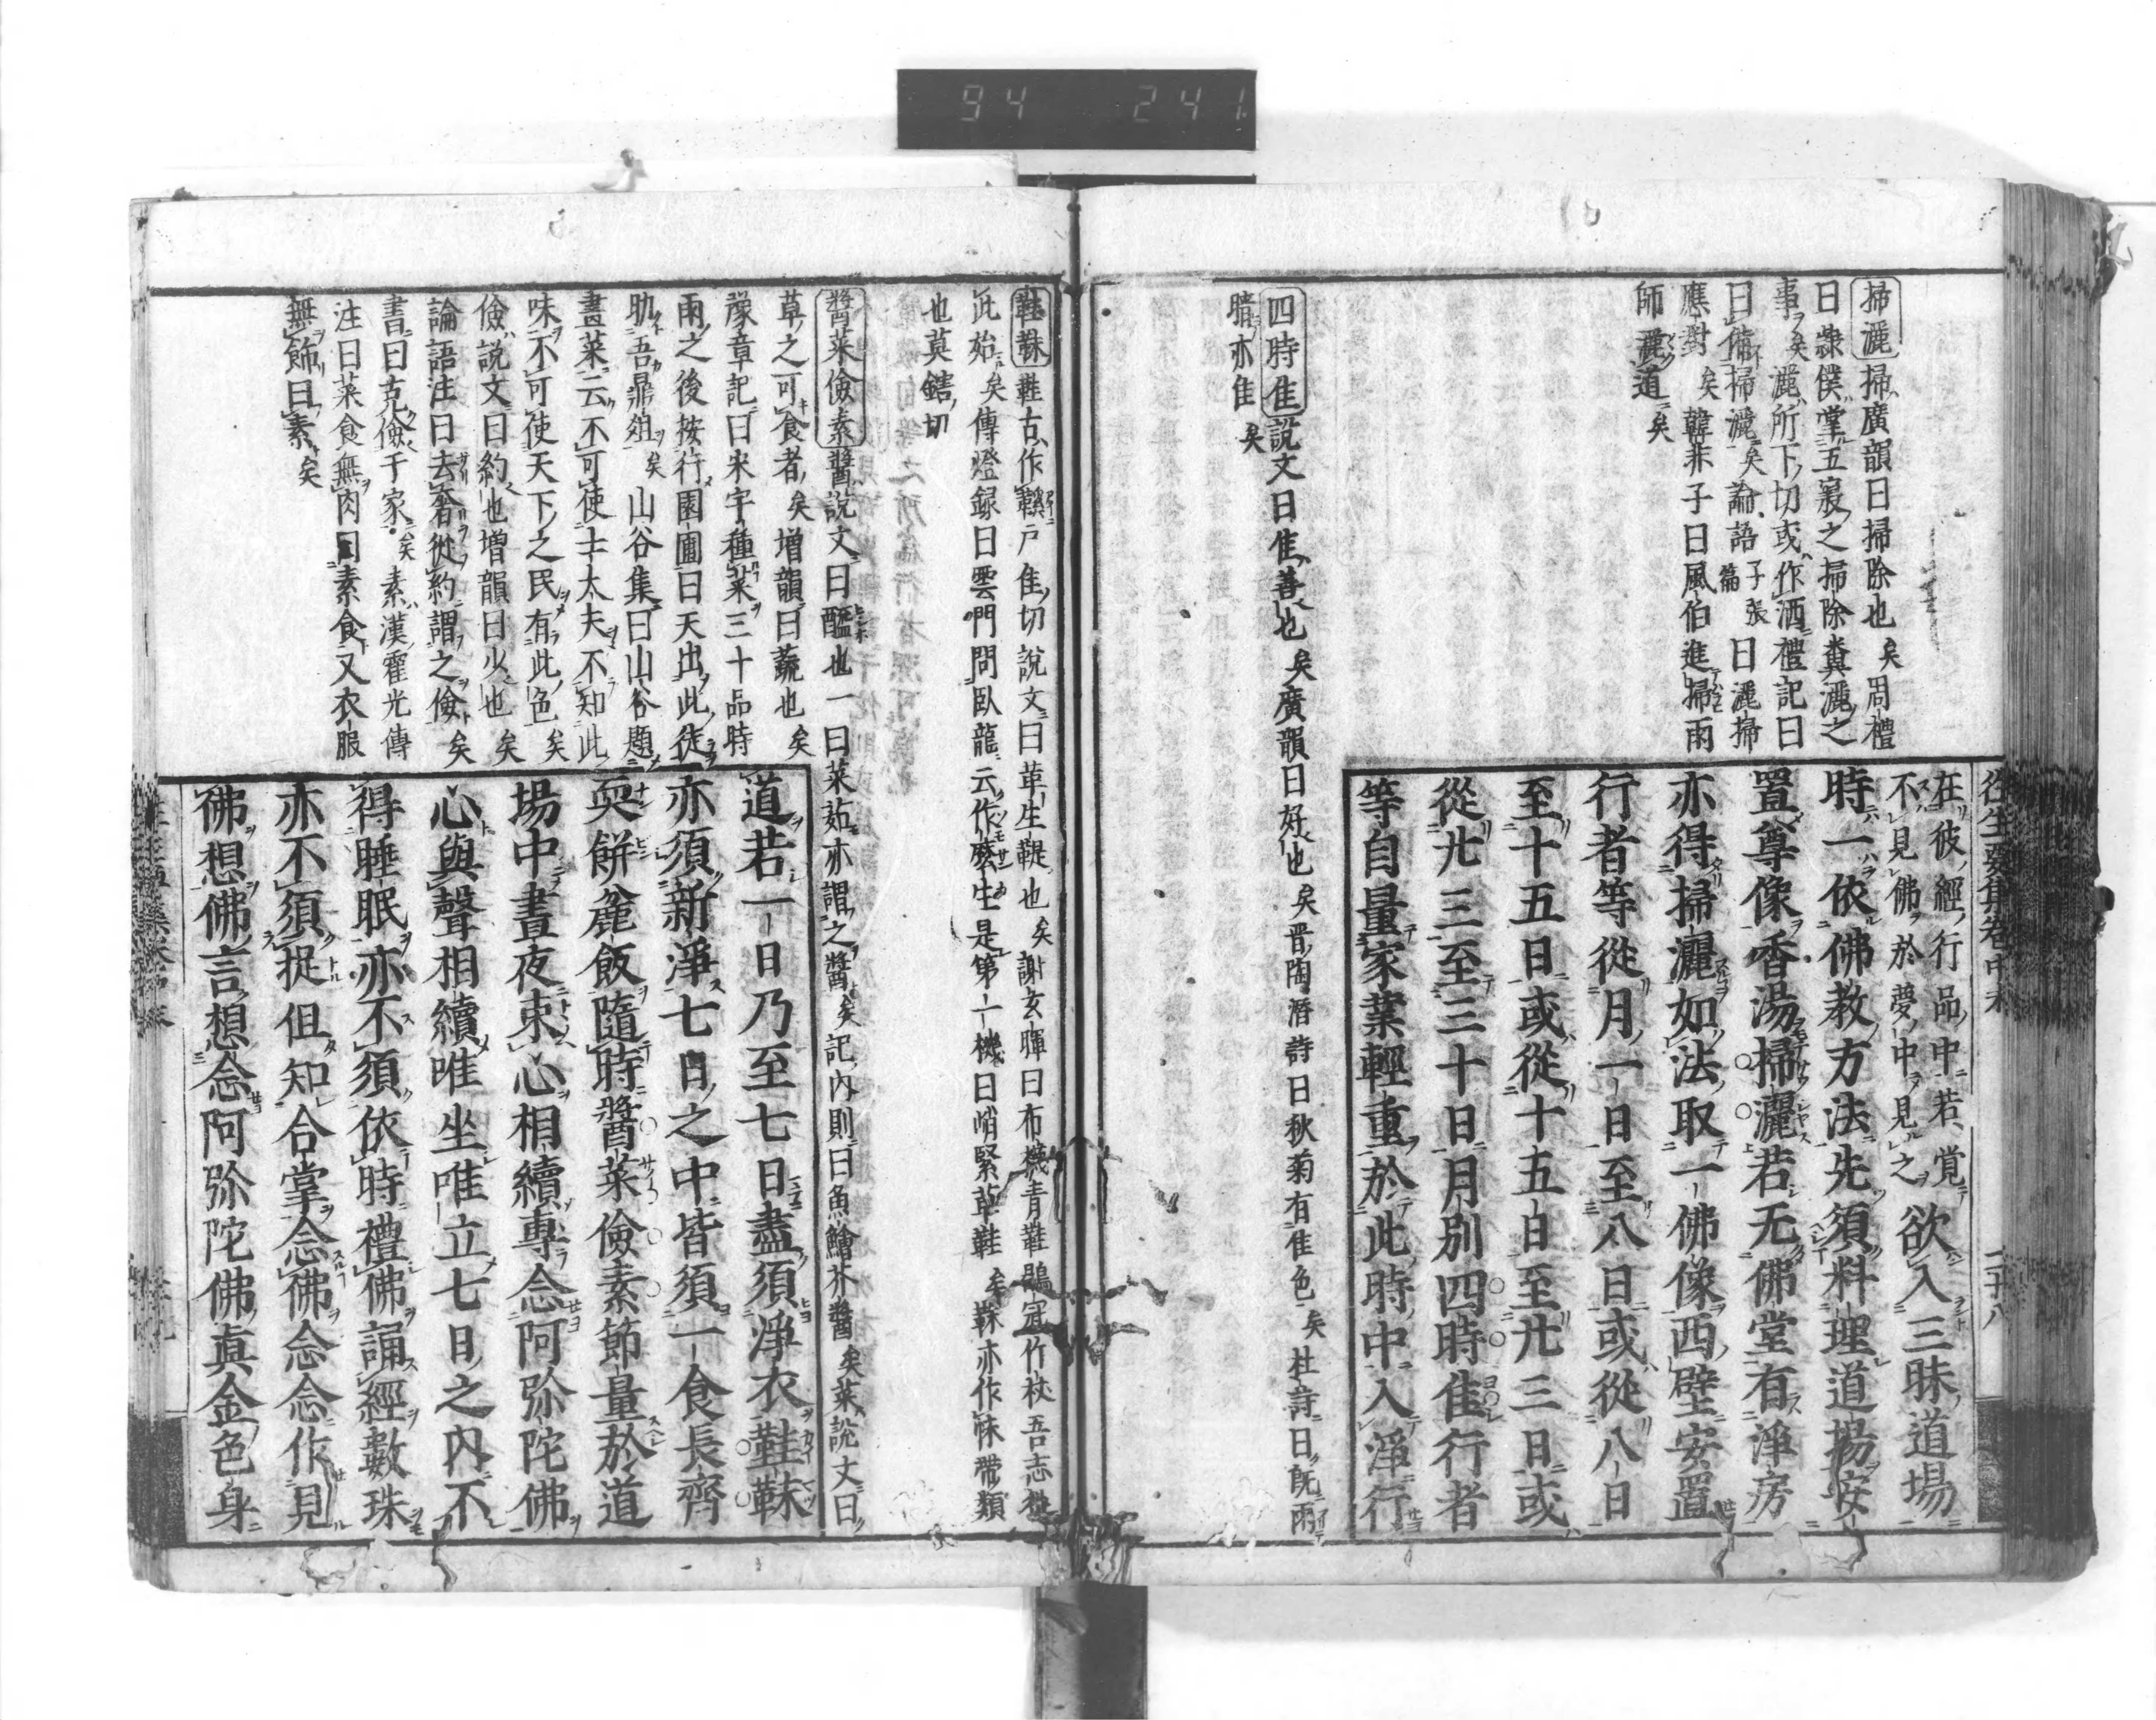 94 241
掃灑掃廣韻曰掃除也矣周禮
曰隷僕掌五寢之掃除糞灑之
事矣灑所下切或作洒禮記曰
曰備掃灑矣論語子張篇曰灑掃
應對矣韓非子曰風伯進掃雨
師灑道矣
四時佳説文曰佳善也矣廣韻曰好也矣晋陶潛詩曰秋菊有佳色矣杜詩曰既雨
晴亦佳矣
往生要集卷中末 二十八
在彼經行品中若覚
不見佛於夢中見之欲入三昧道場
時一依佛教方法先須料理道場安
置尊像香湯掃灑若无佛堂有淨房
亦得掃灑如法取一佛像西壁安置
行者等從月一日至八日或從八日
至十五日或從十五日至廿三日或
從廿三至三十日月別四時佳行者
等自量家業輕重於此時中入淨行
鞋靺鞋古作鞵戸佳切説文曰革生鞮也矣謝玄暉曰布機青鞋鶡冠竹杖吾志
此始矣傳燈録曰雲門問臥龍云作麽生是第一機曰峭緊草鞋矣靺亦作帓帶類
也莫鎋切
醬菜儉素醬説文曰醢也一曰菜茹亦謂之醬矣記内則曰魚鱠芥醬矣菜説文曰
草之可食者矣増韻曰蔬也矣
豫章記曰宋宇種菜三十品時
雨之後按行園圃曰天出此徒
助吾鼎俎矣山谷集曰山谷題
畫菜云不可使士太夫不知此
味不可使天下之民有此色矣
儉説文曰約也増韻曰少也矣
論語注曰去奢從約謂之儉矣
書曰克儉于家矣素漢霍光傳
注曰菜食無肉曰素食又衣服
無飾曰素矣
道若一日乃至七日盡須淨衣鞋靺
亦須新淨七日之中皆須一食長齊
耎餅麁飯隨時醬菜儉素節量於道
場中晝夜束心相續專念阿弥陀佛
心與聲相續唯坐唯立七日之内不
得睡眠亦不須依時禮佛誦經數珠
亦不須捉但知合掌念佛念念作見
佛想佛言想念阿弥陀佛真金色身